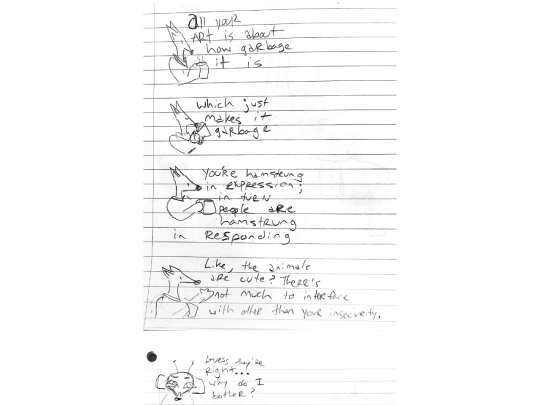 all your
ART is about
how garbage
it is
which just
makes it
garbage
You're hamstrung
in expression;
in turn
people are
hamstrung
in responding
Like, the animals
are cute? There's
not much to interface
with other than your insecurity.
Guess they're
right...
why do I
bother?